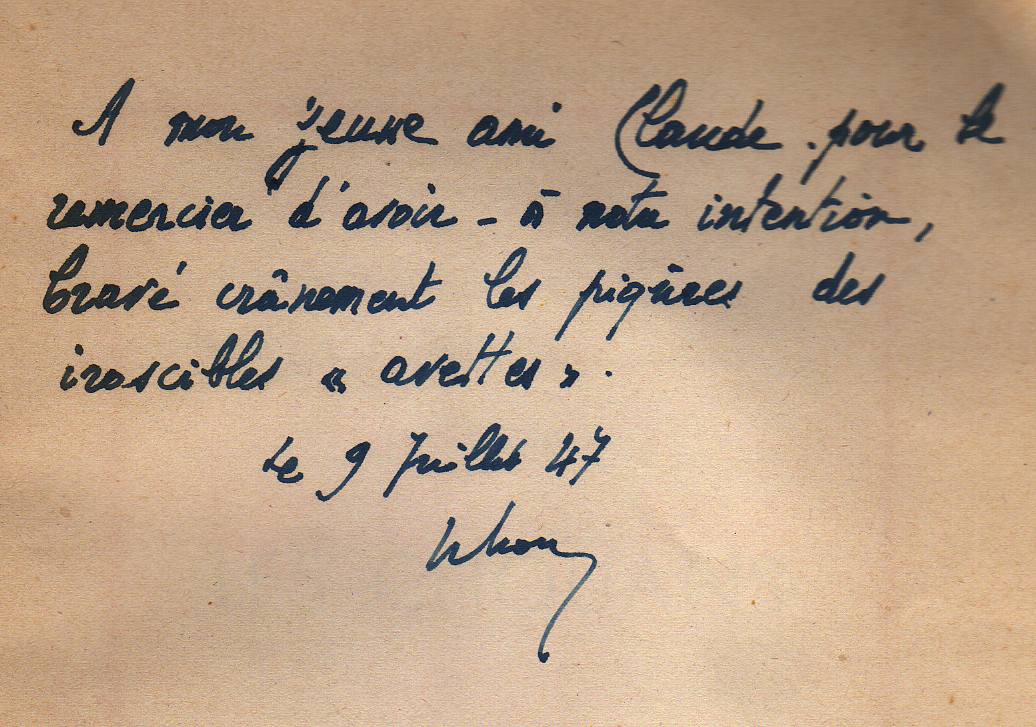 A mon jeune ami Claude. pour le
remercier d'avoir - à notre intention,
bravé crânement les piqûres des
irascibles « avettes ».
Le 9 Juillet 47